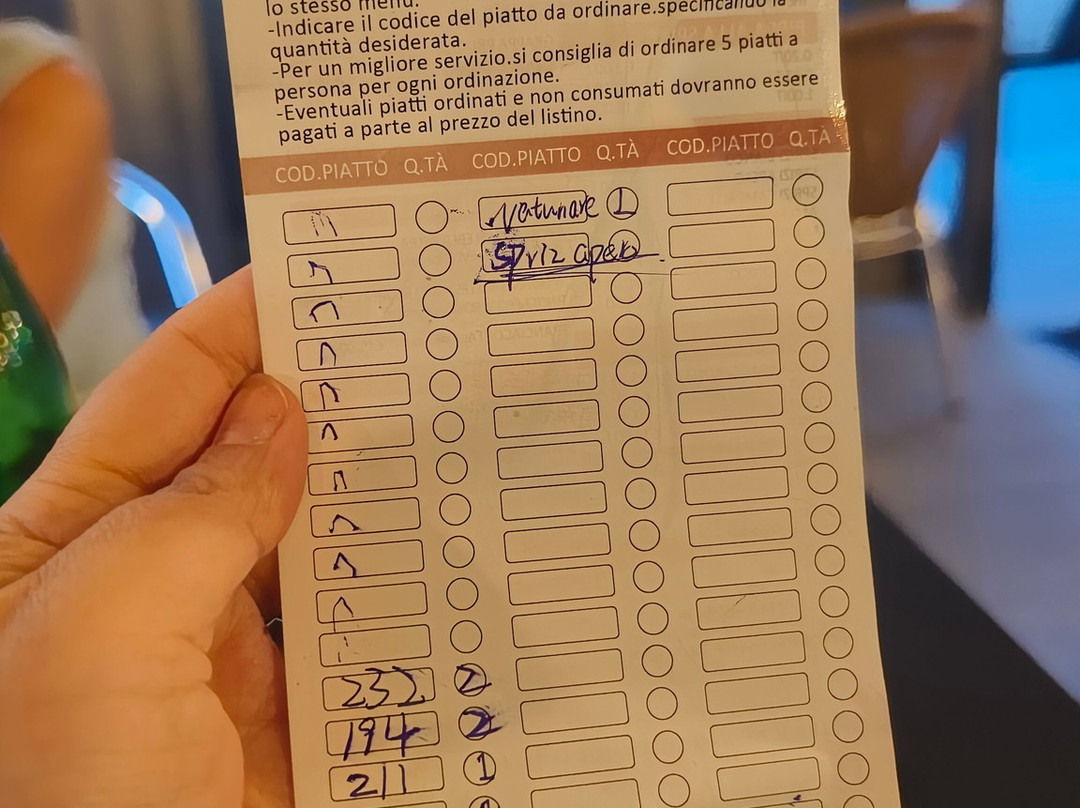 lo stesso menu.
-Indicare il codice del piatto da ordinare.specificando la
quantità desiderata.
-Per un migliore servizio.si consiglia di ordinare 5 piatti a
persona per ogni ordinazione.
-Eventuali piatti ordinati e non consumati dovranno essere
pagati a parte al prezzo del listino.
COD.PIATTO Q.TÀ COD.PIATTO Q.TÀ COD.PIATTO Q.TÀ
1
Spriz apero
232 2
194 2
211 1